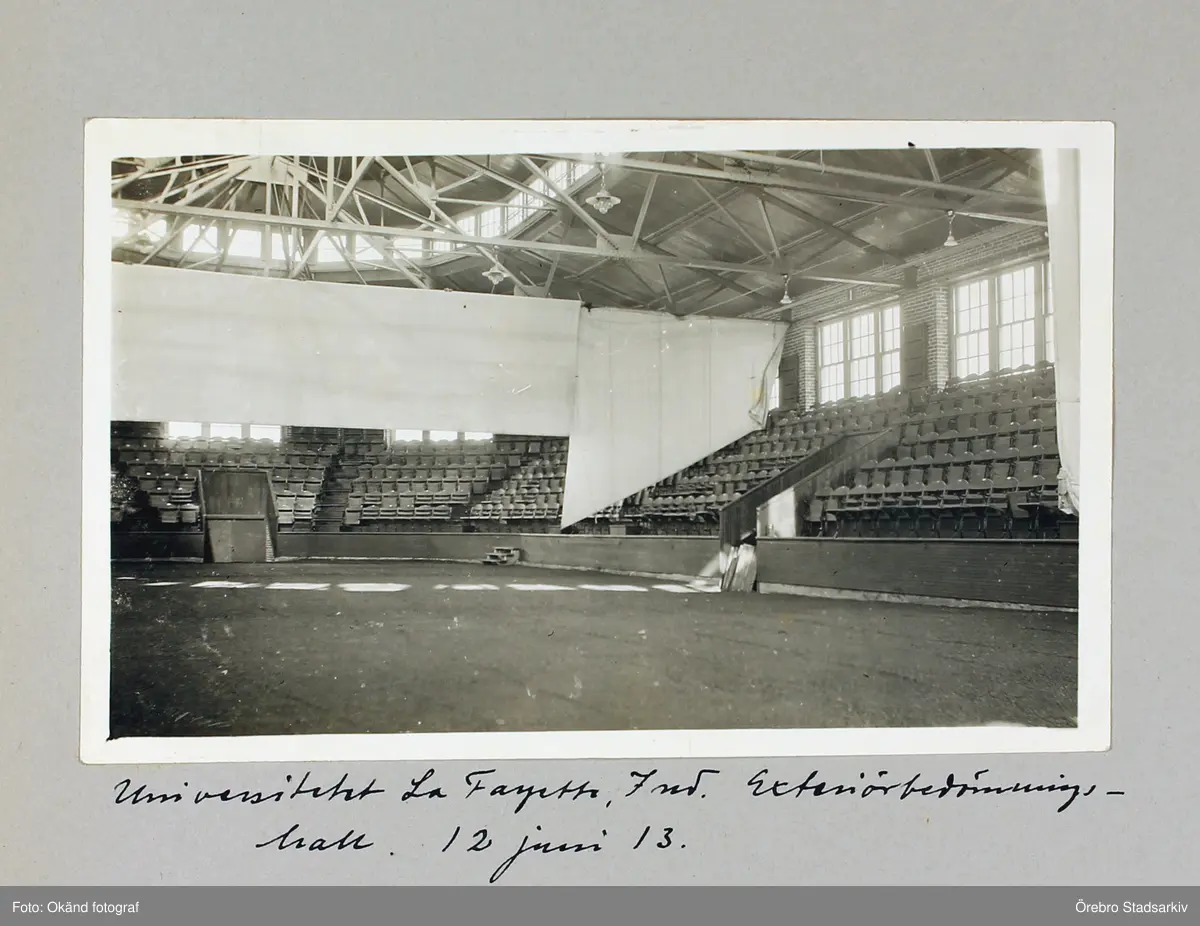 Universitetet La Fayette, Ind. Exteriörbedömnings-
hall. 12 juni 13.
Foto: Okänd fotograf
Örebro Stadsarkiv